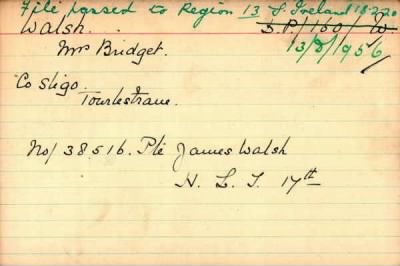 File passed to Region 13 S. Ireland 18.2.20
Walsh. S.P/160/W.
Mrs Bridget. 13/D/1956
Co Sligo.
Tourlestrane.
No/ 38516. Pte James Walsh
H. L. I. 17th